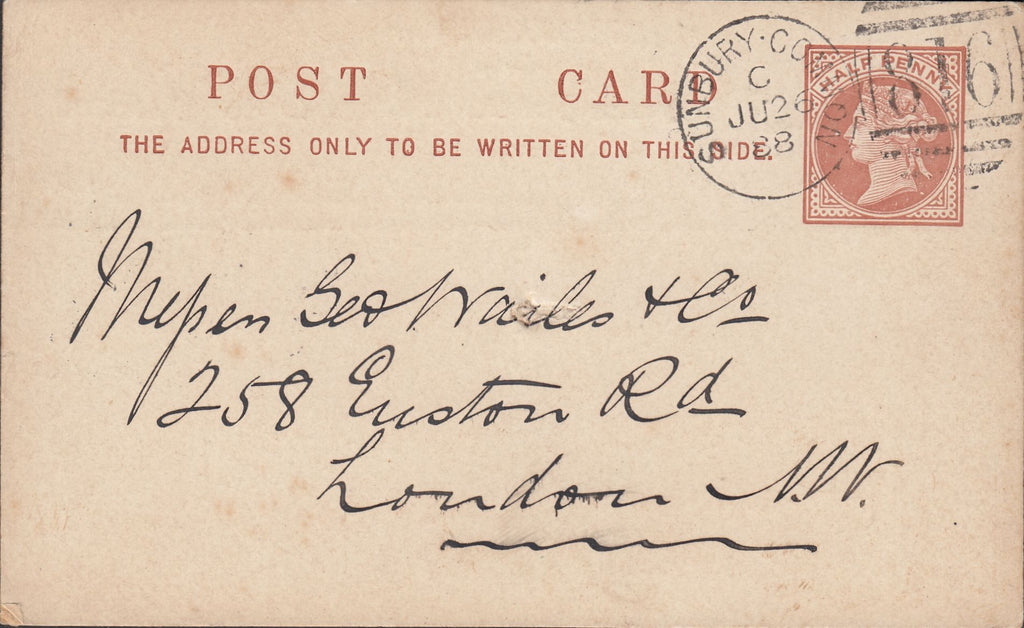 POST CARD
THE ADDRESS ONLY TO BE WRITTEN ON THIS SIDE.
SUNBURY·COMMON
C
JU 26
88
HALF PENNY
816
Messrs Geo Wailes & Co
258 Euston Rd
London N.W.